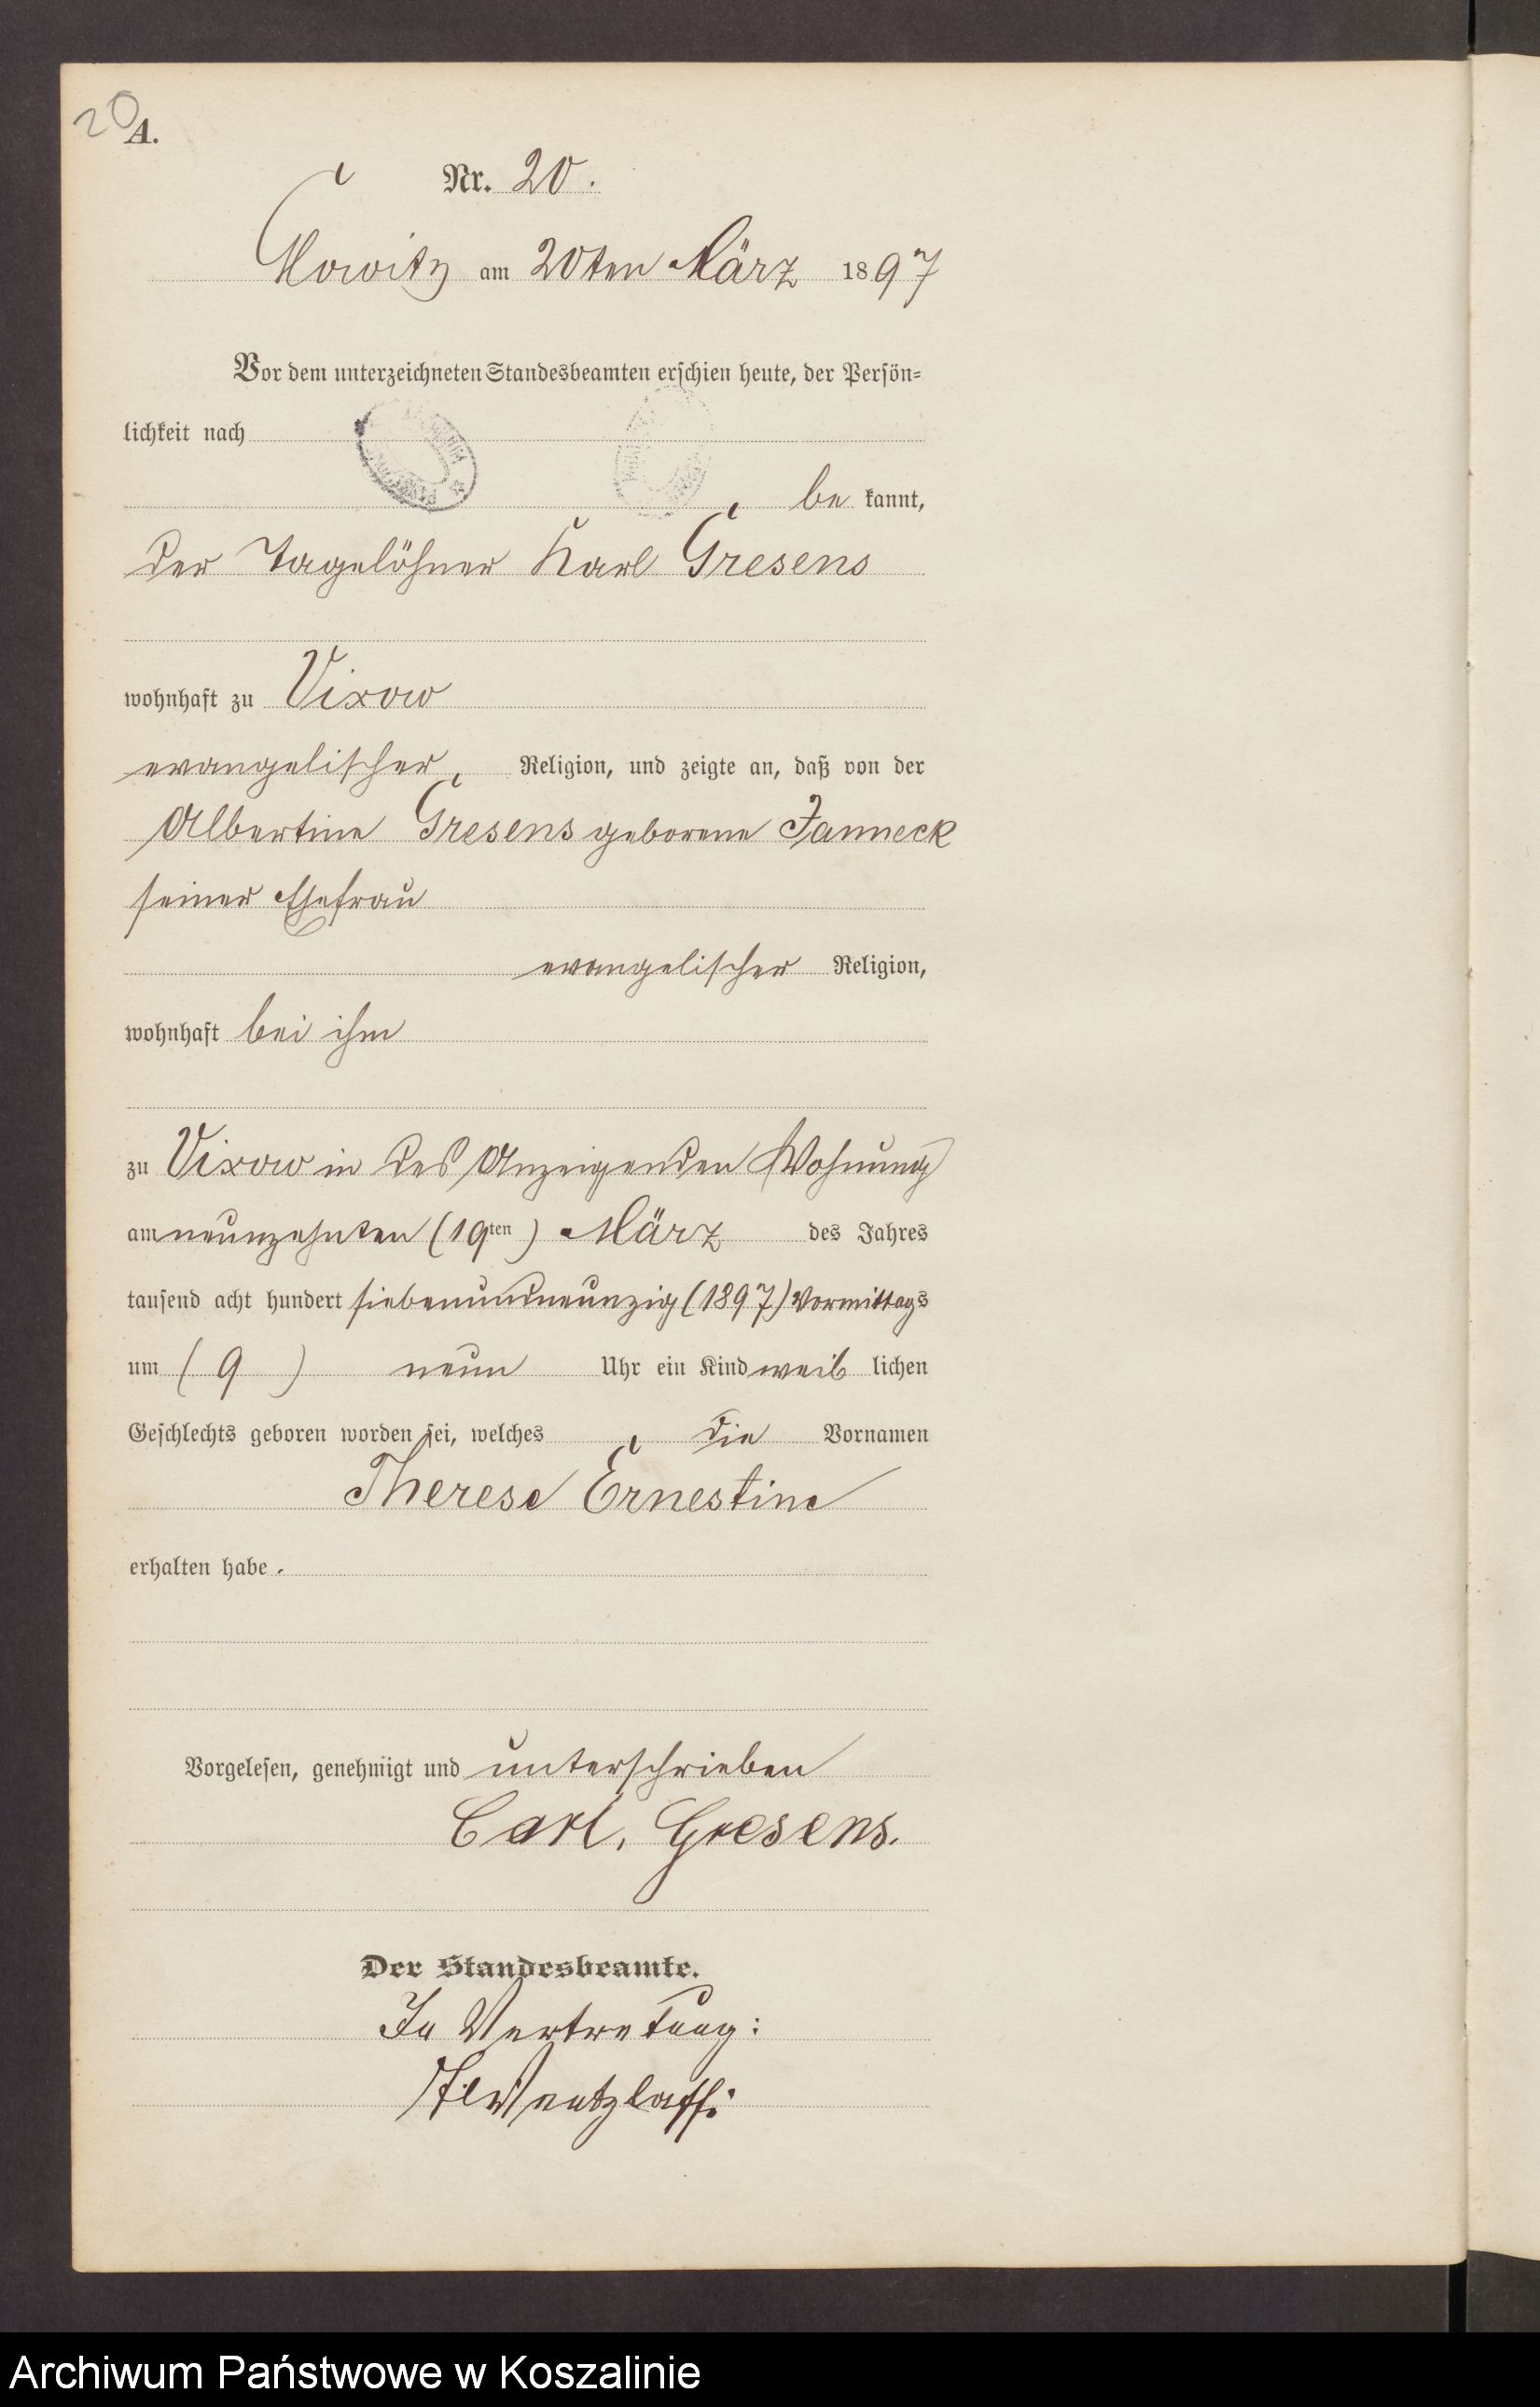 20
A.
Nr. 20.
Chowitz am 20ten März 1897
Vor dem unterzeichneten Standesbeamten erschien heute, der Persön-
lichkeit nach
be kannt,
der Tagelöhner Karl Gresens
wohnhaft zu Vixow
evangelischer Religion, und zeigte an, daß von der
Albertine Gresens geborene Janneck
seiner Ehefrau
evangelischer Religion,
wohnhaft bei ihm
zu Vixow in des Anzeigenden Wohnung
am neunzehnten (19ten) März des Jahres
tausend acht hundert siebenundneunzig (1897) Vormittags
um (9) neun Uhr ein Kind weib lichen
Geschlechts geboren worden sei, welches die Vornamen
Therese Ernestine
erhalten habe.
Vorgelesen, genehmigt und unterschrieben
Carl. Gresens.
Der Standesbeamte.
In Vertretung:
Wentzlaff.
Archiwum Państwowe w Koszalinie